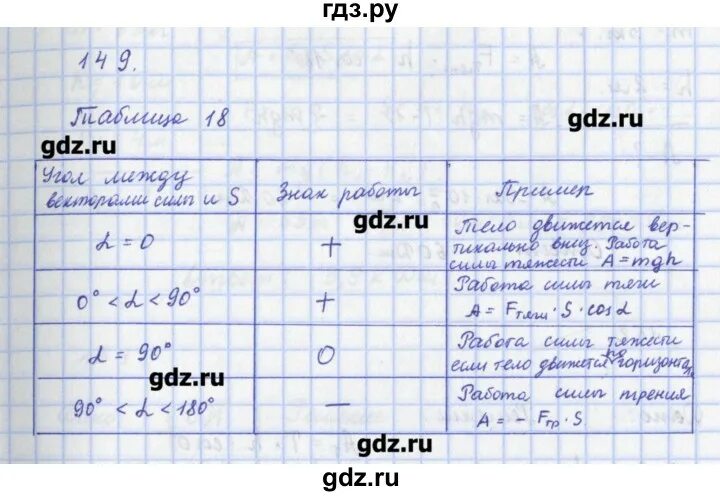 гдз.ру
149.
Таблица 18
gdz.ru
gdz.ru
Угол между
векторами силы и S
Знак работы
Пример
gdz.ru
α = 0
+
Тело движется вер-
тикально вниз. Работа
силы тяжести A = mgh
0° < α < 90°
+
Работа силы тяги
A = Fтяги · S · cos α
α = 90°
0
Работа силы тяжести
если тело движется по горизонта
gdz.ru
90° < α < 180°
—
Работа силы трения
A = - Fтр · S
gdz.ru
gdz.ru